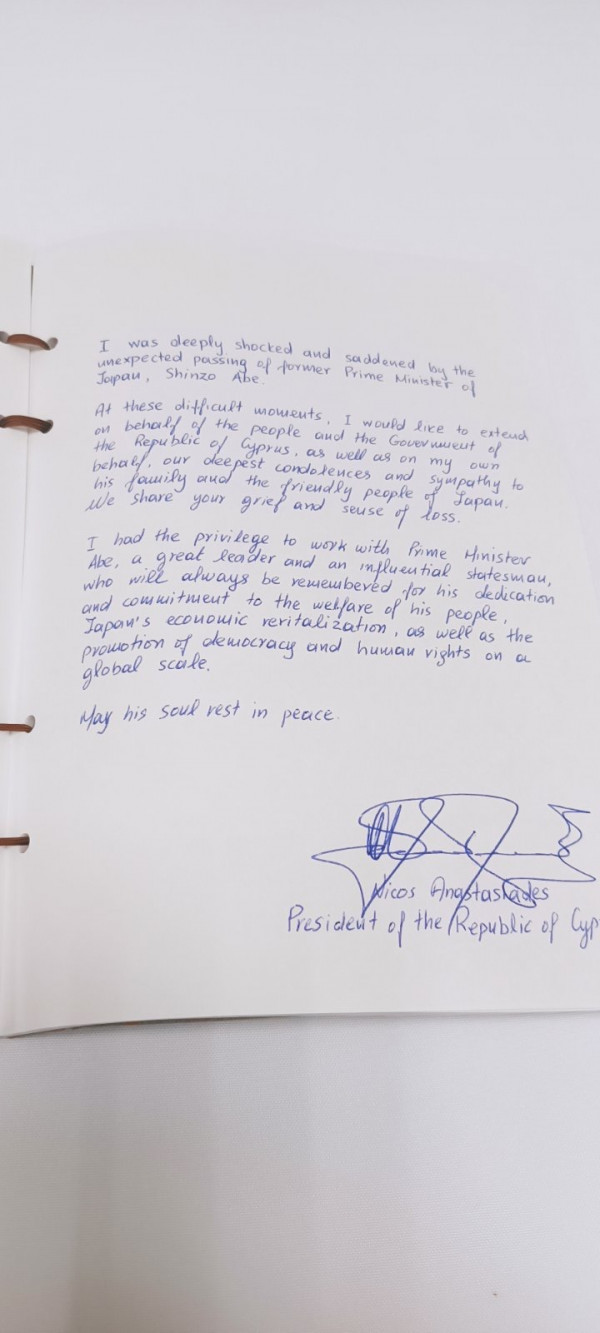 I was deeply shocked and saddened by the
unexpected passing of former Prime Minister of
Japan, Shinzo Abe.
At these difficult moments, I would like to extend
on behalf of the people and the Government of
the Republic of Cyprus, as well as on my own
behalf, our deepest condolences and sympathy to
his family and the friendly people of Japan.
We share your grief and sense of loss.
I had the privilege to work with Prime Minister
Abe, a great leader and an influential statesman,
who will always be remembered for his dedication
and commitment to the welfare of his people,
Japan's economic revitalization, as well as the
promotion of democracy and human rights on a
global scale.
May his soul rest in peace.
Nicos Anastasiades
President of the Republic of Cyp